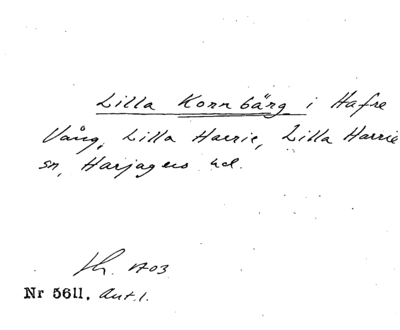 Lilla Kornbärg i Hafre
Vång, Lilla Harrie, Lilla Harrie
sn, Harjagers hd.
1703
Nr 5611. Ant. 1.